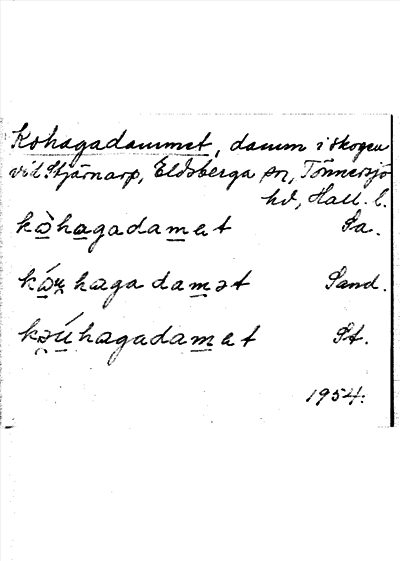 Kohagadammet, damm i skogen
vid Stjärnarp, Eldsberga sn, Tönnersjö
hd, Hall. l.
kòhagadamet Sa.
haga damət Sand.
hagadamet St.
1954.